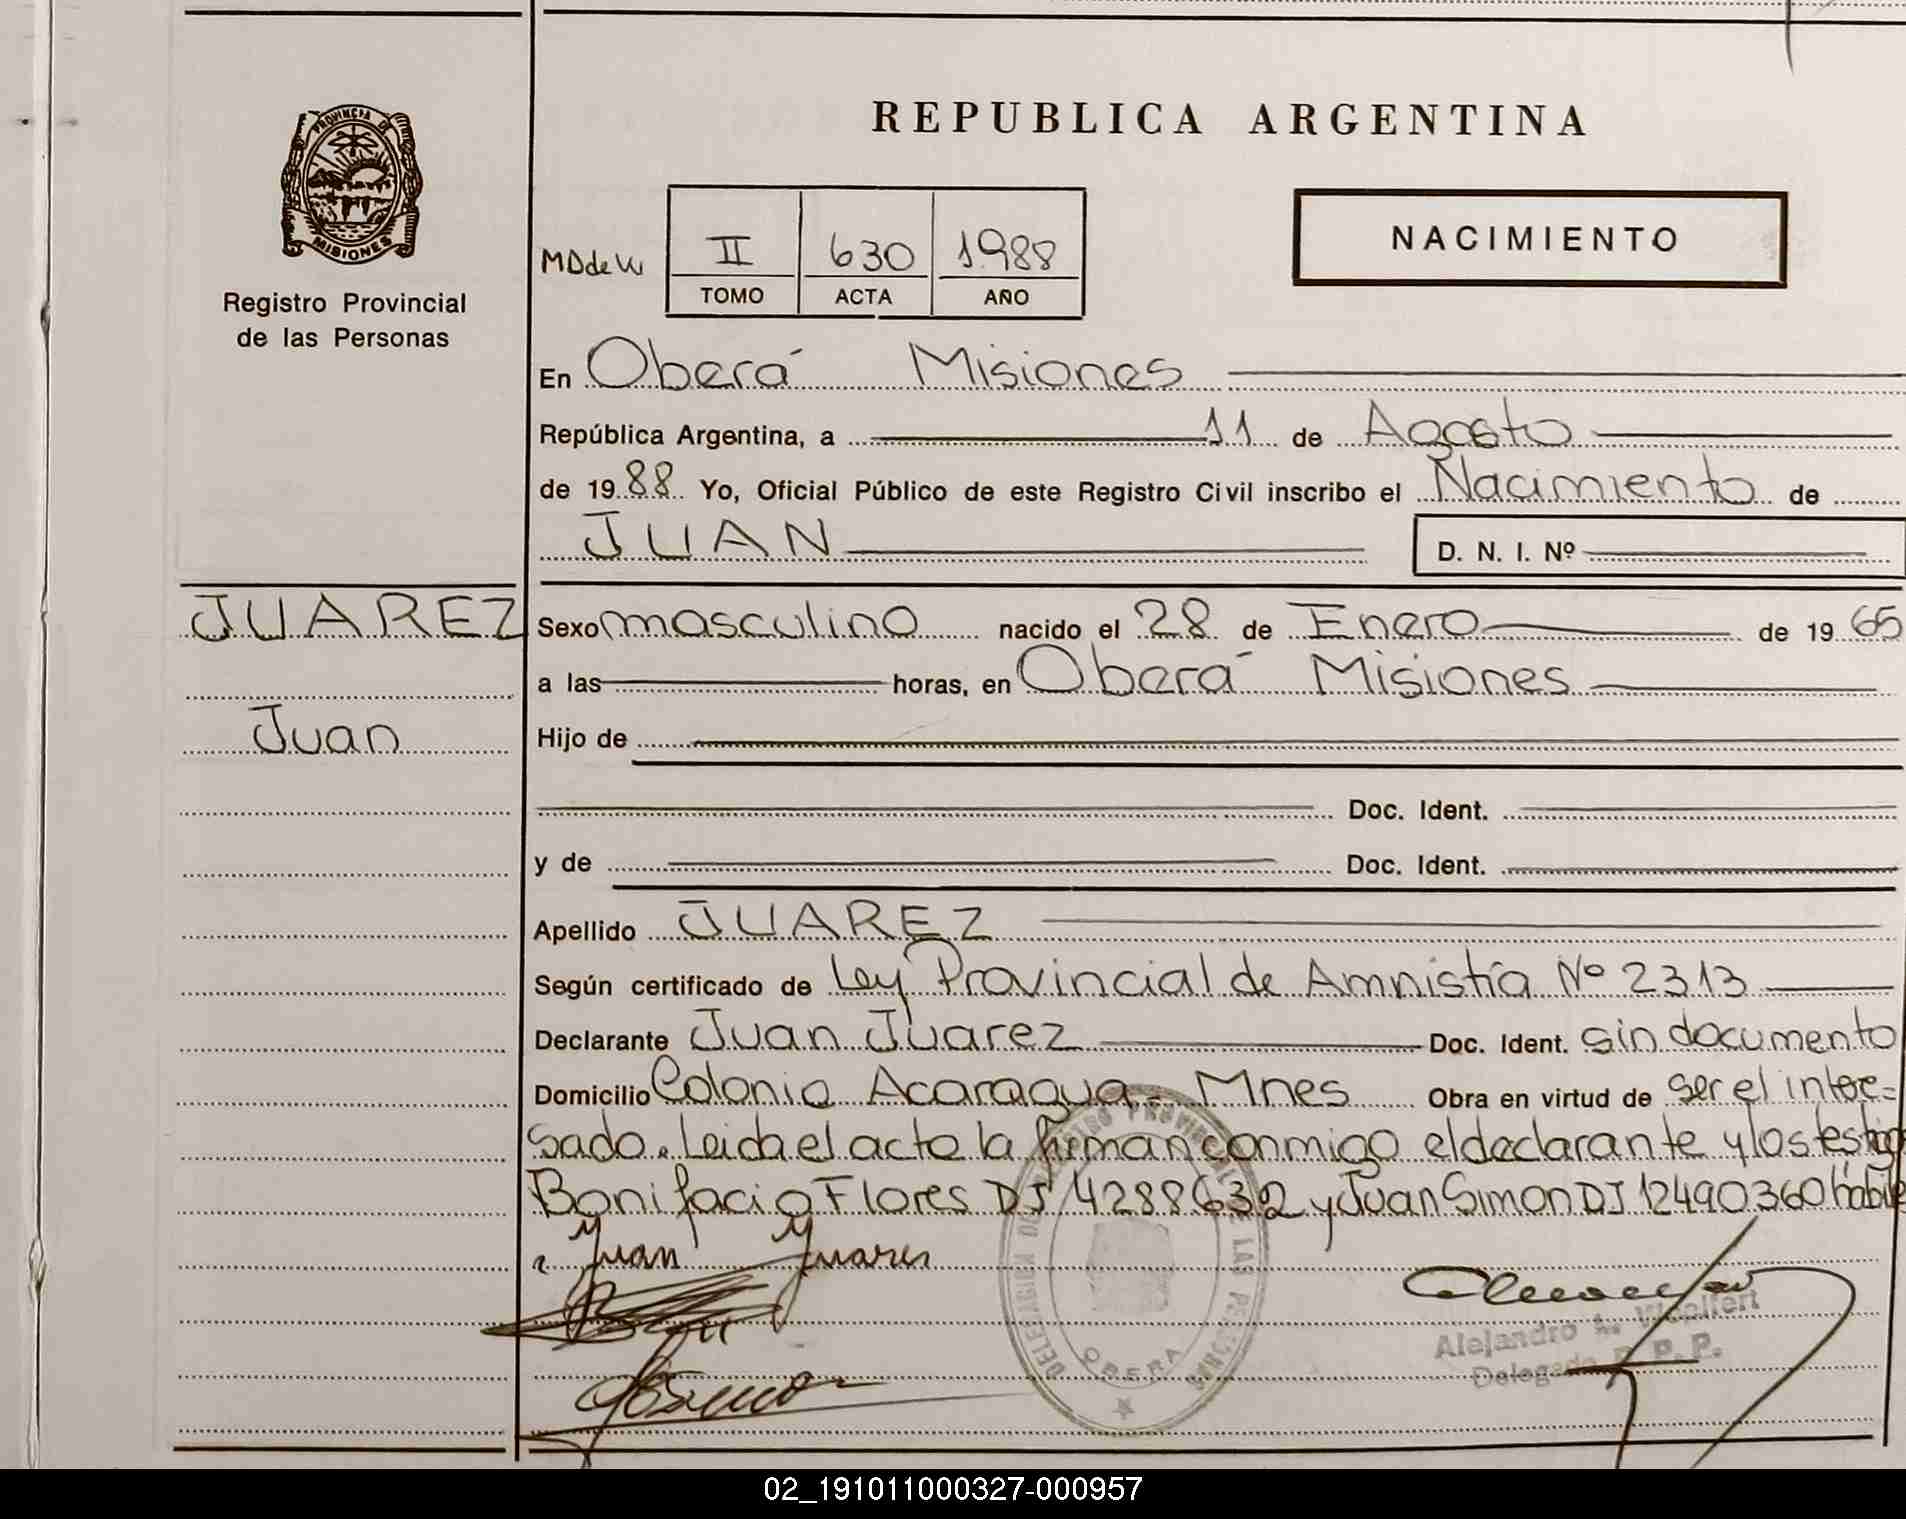 REPUBLICA ARGENTINA
PROVINCIA DE
MISIONES
Registro Provincial
de las Personas
II 630 1988
TOMO ACTA AÑO
NACIMIENTO
En Oberá Misiones
República Argentina, a 11 de Agosto
de 1988 Yo, Oficial Público de este Registro Civil inscribo el Nacimiento de
JUAN D. N. I. Nº
JUAREZ
Juan
Sexo masculino nacido el 28 de Enero de 1965
a las horas, en Oberá Misiones
Hijo de
Doc. Ident.
y de Doc. Ident.
Apellido JUAREZ
Según certificado de Ley Provincial de Amnistía Nº 2313
Declarante Juan Juarez Doc. Ident. sin documento
Domicilio Colonia Acaragua- Mnes Obra en virtud de ser el intere=
sado. Leida el acta la firman conmigo el declarante y los testigos
Bonifacio Flores DJ 4288632 y Juan Simon DJ 12490360 habiles
Juan Juares
DELEGACION REGISTRO PROVINCIAL DE LAS PERSONAS
OBERA
Alejandro L.
Delegado R. P. P.
02_191011000327-000957